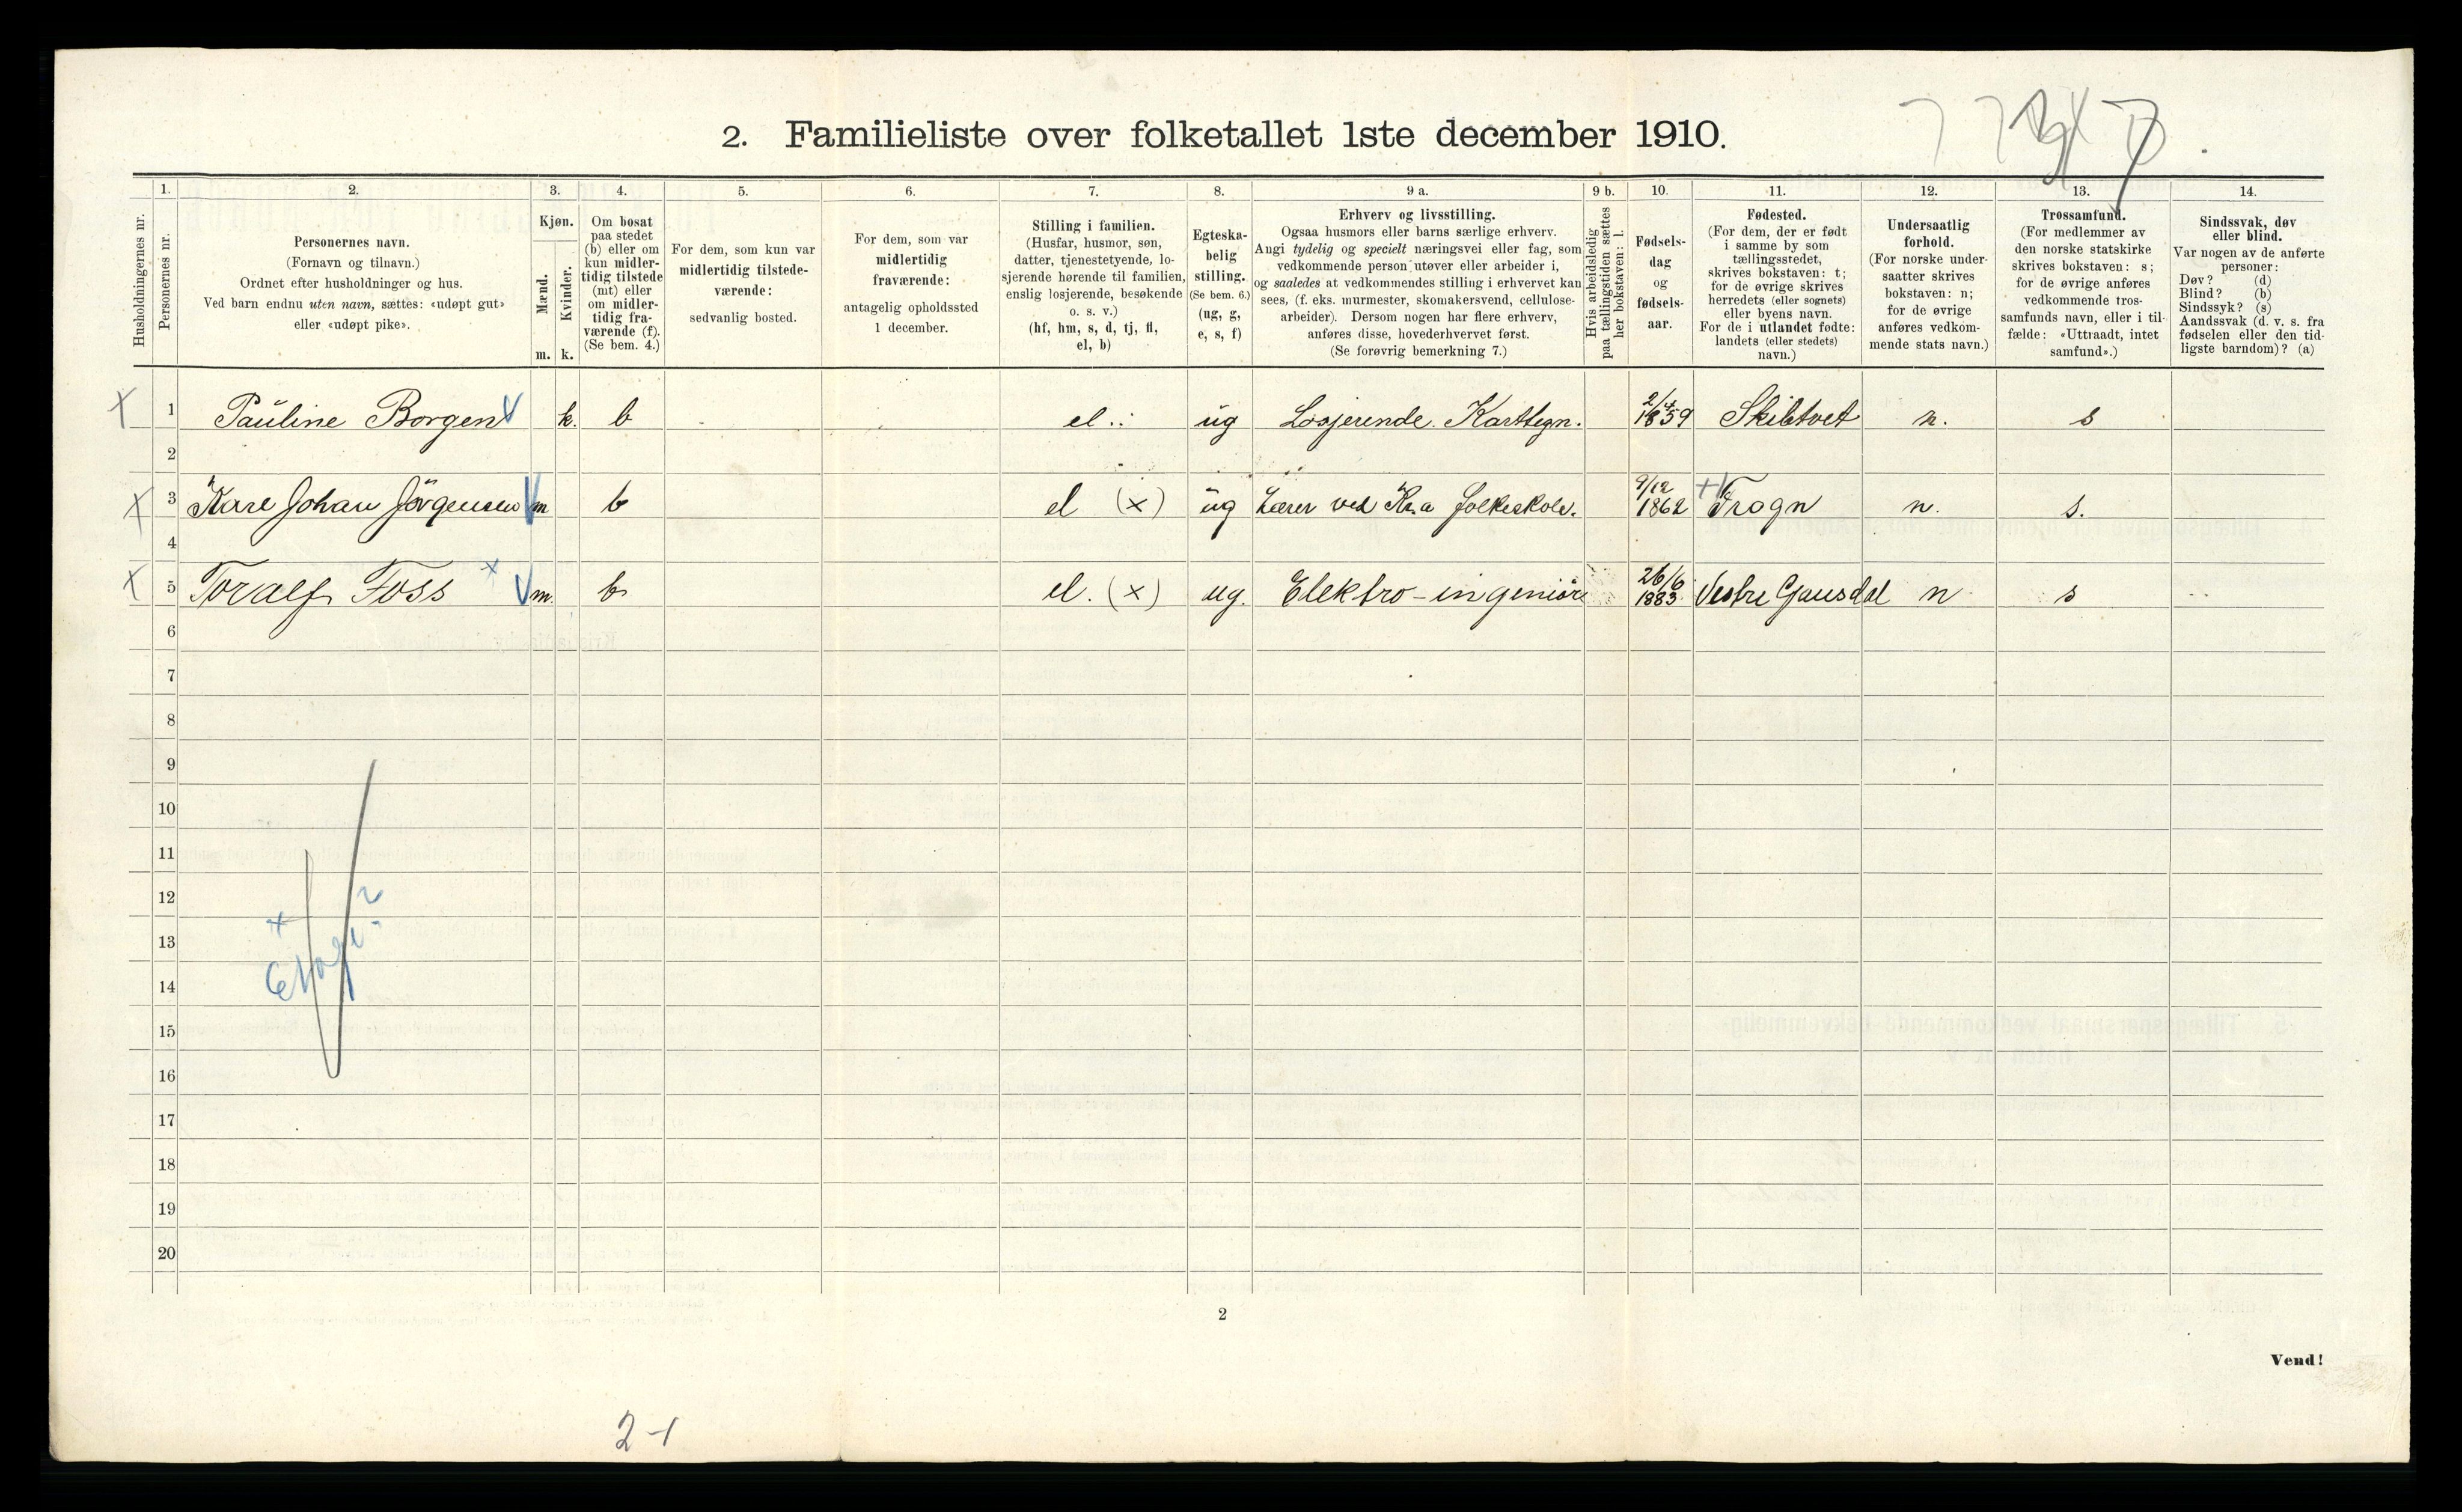 2. Familieliste over folketallet 1ste december 1910.
Husholdningernes nr.
1.
Personernes nr.
2.
Personernes navn.
(Fornavn og tilnavn.)
Ordnet efter husholdninger og hus.
Ved barn endnu uten navn, sættes: «udøpt gut»
eller «udøpt pike».
3.
Kjøn.
Mænd.
Kvinder.
m. k.
4.
Om bosat
paa stedet
(b) eller om
kun midler-
tidig tilstede
(mt) eller
om midler-
tidig fra-
værende (f).
(Se bem. 4.)
5.
For dem, som kun var
midlertidig tilstede-
værende:
sedvanlig bosted.
6.
For dem, som var
midlertidig
fraværende:
antagelig opholdssted
1 december.
7.
Stilling i familien.
(Husfar, husmor, søn,
datter, tjenestetyende, lo-
sjerende hørende til familien,
enslig losjerende, besøkende
o. s. v.)
(hf, hm, s, d, tj, fl,
el, b)
8.
Egteska-
belig
stilling.
(Se bem. 6.)
(ug, g,
e, s, f)
9 a.
Erhverv og livsstilling.
Ogsaa husmors eller barns særlige erhverv.
Angi tydelig og specielt næringsvei eller fag, som
vedkommende person utøver eller arbeider i,
og saaledes at vedkommendes stilling i erhvervet kan
sees, (f. eks. murmester, skomakersvend, cellulose-
arbeider). Dersom nogen har flere erhverv,
anføres disse, hovederhvervet først.
(Se forøvrig bemerkning 7.)
9 b.
Hvis arbeidsledig
paa tællingstiden sættes
her bokstaven: l.
10.
Fødsels-
dag
og
fødsels-
aar.
11.
Fødested.
(For dem, der er født
i samme by som
tællingsstedet,
skrives bokstaven: t;
for de øvrige skrives
herredets (eller sognets)
eller byens navn.
For de i utlandet fødte:
landets (eller stedets)
navn.)
12.
Undersaatlig
forhold.
(For norske under-
saatter skrives
bokstaven: n;
for de øvrige
anføres vedkom-
mende stats navn.)
13.
Trossamfund.
(For medlemmer av
den norske statskirke
skrives bokstaven: s;
for de øvrige anføres
vedkommende tros-
samfunds navn, eller i til-
fælde: «Uttraadt, intet
samfund».)
14.
Sindssvak, døv
eller blind.
Var nogen av de anførte
personer:
Døv? (d)
Blind? (b)
Sindssyk? (s)
Aandssvak (d. v. s. fra
fødselen eller den tid-
ligste barndom)? (a)
x 1 Pauline Borgen k. b el. ug Losjerende. Karttegn. 2/4 1859 Skibtvet n. s
2
x 3 Karl Johan Jörgensen m b el (x) ug Lærer ved Kr.a folkeskole. 9/12 1862 Frogn n. s.
4
x 5 Toralf Foss x m. b el. (x) ug. Elektro-ingeniör 26/6 1883 Vestre Gausdal n s
6
7
8
9
10
11
12
13
14
15
16
17
18
19
20
2
Vend!
2-1